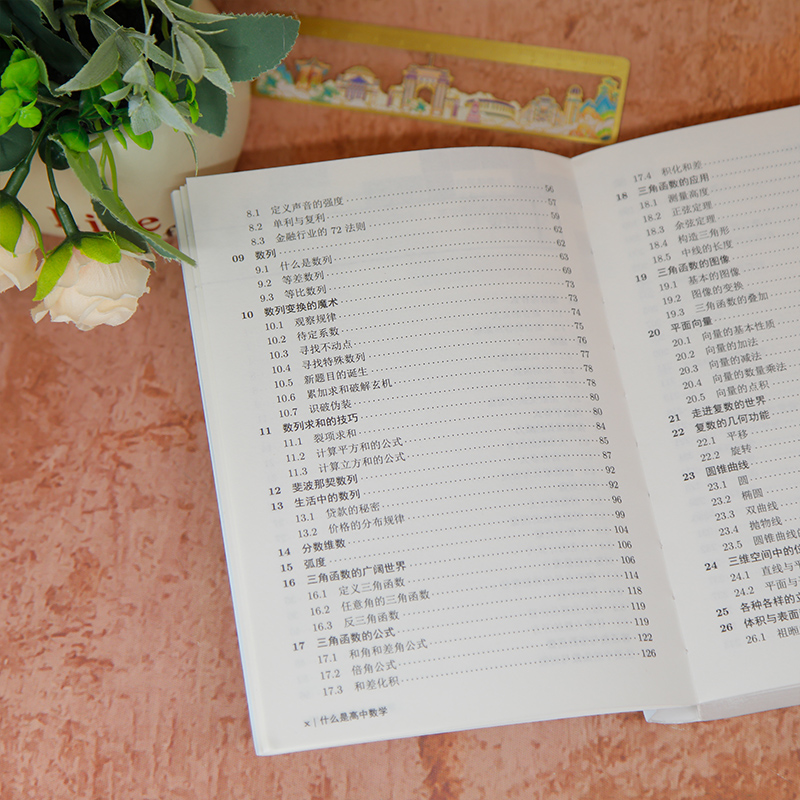 8.1 定义声音的强度 56
8.2 单利与复利 57
8.3 金融行业的 72 法则 59
09 数列 62
9.1 什么是数列 62
9.2 等差数列 63
9.3 等比数列 69
10 数列变换的魔术 73
10.1 观察规律 73
10.2 待定系数 74
10.3 寻找不动点 75
10.4 寻找特殊数列 76
10.5 新题目的诞生 77
10.6 累加求和破解玄机 78
10.7 识破伪装 78
11 数列求和的技巧 80
11.1 裂项求和 80
11.2 计算平方和的公式 84
11.3 计算立方和的公式 85
12 斐波那契数列 87
13 生活中的数列 92
13.1 贷款的秘密 92
13.2 价格的分布规律 96
14 分数维数 99
15 弧度 104
16 三角函数的广阔世界 106
16.1 定义三角函数 106
16.2 任意角的三角函数 114
16.3 反三角函数 118
17 三角函数的公式 119
17.1 和角和差角公式 119
17.2 倍角公式 122
17.3 和差化积 126
x | 什么是高中数学
17.4 积化和差
18 三角函数的应用
18.1 测量高度
18.2 正弦定理
18.3 余弦定理
18.4 构造三角形
18.5 中线的长度
19 三角函数的图像
19.1 基本的图像
19.2 图像的变换
19.3 三角函数的叠加
20 平面向量
20.1 向量的基本性质
20.2 向量的加法
20.3 向量的减法
20.4 向量的数量乘法
20.5 向量的点积
21 走进复数的世界
22 复数的几何功能
22.1 平移
22.2 旋转
23 圆锥曲线
23.1 圆
23.2 椭圆
23.3 双曲线
23.4 抛物线
23.5 圆锥曲线的
24 三维空间中的
24.1 直线与平
24.2 平面与
25 各种各样的立
26 体积与表面
26.1 祖暅